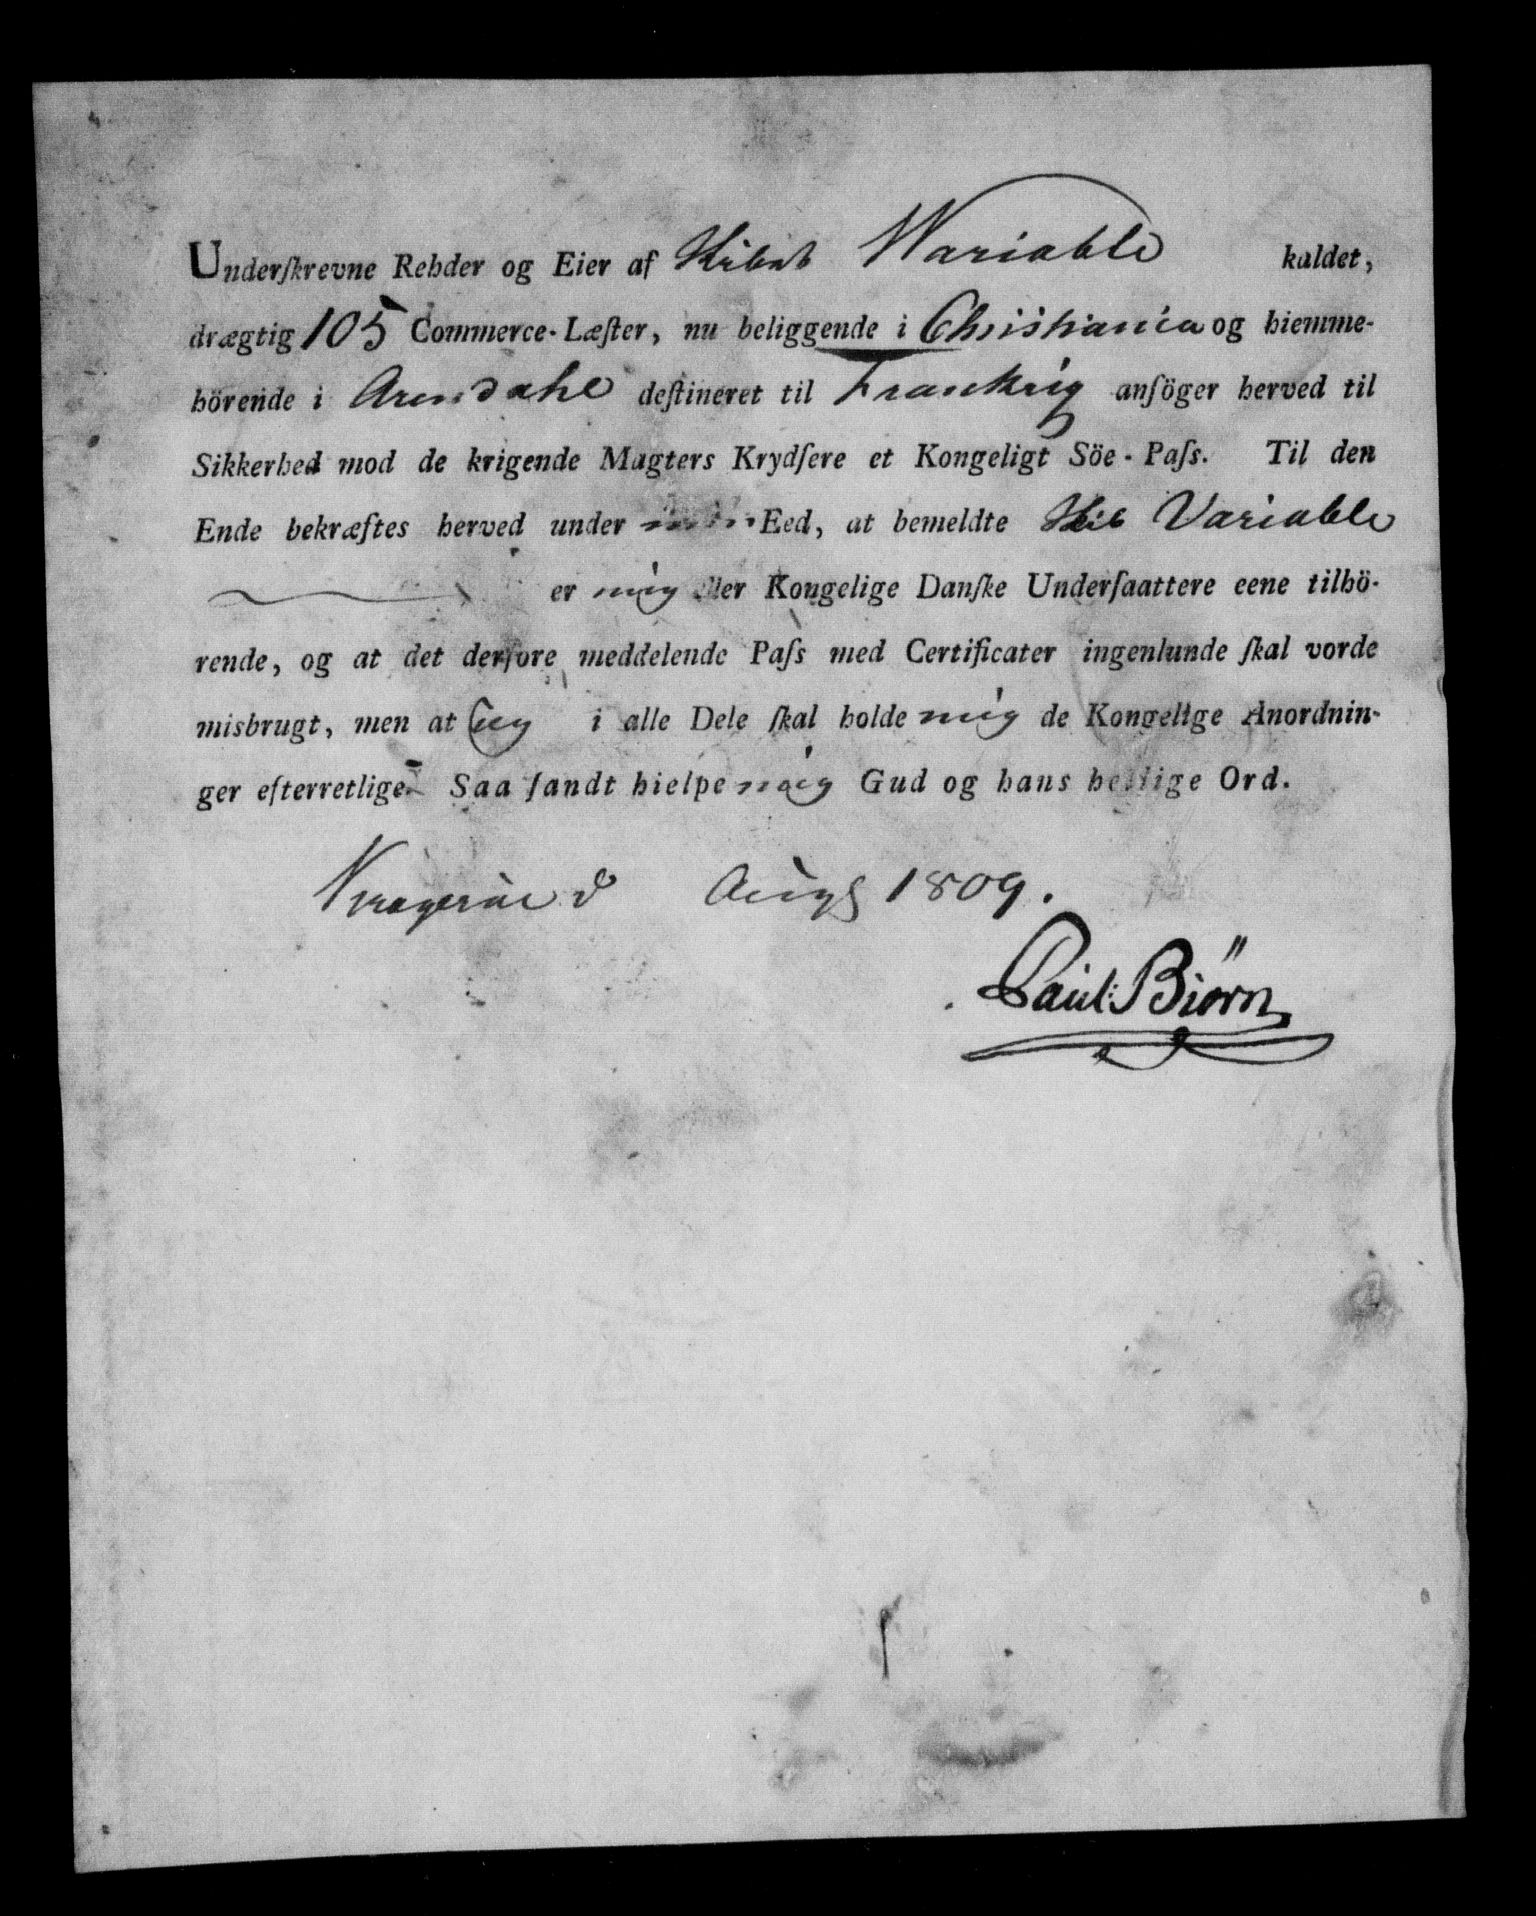 Underſkrevne Rehder og Eier af Skibet Wariable kaldet,
drægtig 105 Commerce-Læſter, nu beliggende i Christiania og hiemme-
hörende i Arendahl deſtineret til Frankrig anſöger herved til
Sikkerhed mod de krigende Magters Krydſere et Kongeligt Söe-Paſs. Til den
Ende bekræftes herved under Eed, at bemeldte Skib Variable
er mig eller Kongelige Danſke Underſaattere eene tilhö-
rende, og at det derfore meddelende Paſs med Certificater ingenlunde ſkal vorde
misbrugt, men at Jeg i alle Dele ſkal holde mig de Kongelige Anordnin-
ger efterretlige. Saa ſandt hielpe mig Gud og hans hellige Ord.
Kragerøe d Aug 1809.
Paul: Biørn